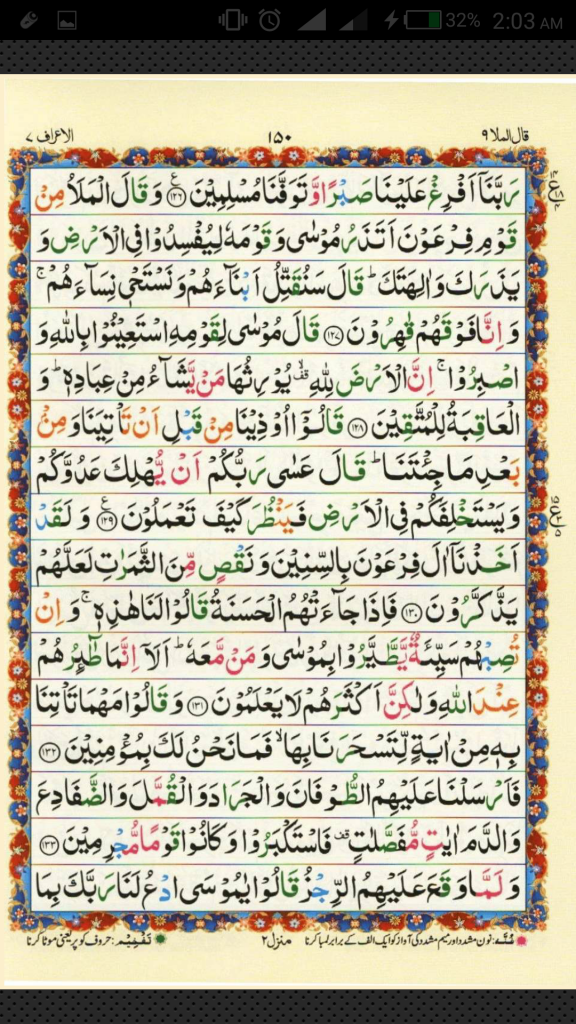 32% 2:03 AM
قال الملا ٩ ١٥٠ الاعراف ٧
رَبَّنَاۤ اَفْرِغْ عَلَيْنَا صَبْرًا وَّ تَوَفَّنَا مُسْلِمِيْنَ ﴿١٢٦﴾ۧ وَ قَالَ الْمَلَاُ مِنْ
قَوْمِ فِرْعَوْنَ اَتَذَرُ مُوْسٰى وَ قَوْمَهٗ لِيُفْسِدُوْا فِى الْاَرْضِ وَ
يَذَرَكَ وَ اٰلِهَتَكَ ؕ قَالَ سَنُقَتِّلُ اَبْنَآءَهُمْ وَ نَسْتَحْىٖ نِسَآءَهُمْ ۚ
وَ اِنَّا فَوْقَهُمْ قٰهِرُوْنَ ﴿١٢٧﴾ قَالَ مُوْسٰى لِقَوْمِهِ اسْتَعِيْنُوْا بِاللّٰهِ وَ
اصْبِرُوْا ۚ اِنَّ الْاَرْضَ لِلّٰهِ ۙ۫ يُوْرِثُهَا مَنْ يَّشَآءُ مِنْ عِبَادِهٖ ؕ وَ
الْعَاقِبَةُ لِلْمُتَّقِيْنَ ﴿١٢٨﴾ قَالُوْۤا اُوْذِيْنَا مِنْ قَبْلِ اَنْ تَاْتِيَنَا وَ مِنْۢ
بَعْدِ مَا جِئْتَنَا ؕ قَالَ عَسٰى رَبُّكُمْ اَنْ يُّهْلِكَ عَدُوَّكُمْ
وَ يَسْتَخْلِفَكُمْ فِى الْاَرْضِ فَيَنْظُرَ كَيْفَ تَعْمَلُوْنَ ﴿١٢٩﴾ۧ وَ لَقَدْ
اَخَذْنَاۤ اٰلَ فِرْعَوْنَ بِالسِّنِيْنَ وَ نَقْصٍ مِّنَ الثَّمَرٰتِ لَعَلَّهُمْ
يَذَّكَّرُوْنَ ﴿١٣٠﴾ فَاِذَا جَآءَتْهُمُ الْحَسَنَةُ قَالُوْا لَنَا هٰذِهٖ ۚ وَ اِنْ
تُصِبْهُمْ سَيِّئَةٌ يَّطَّيَّرُوْا بِمُوْسٰى وَ مَنْ مَّعَهٗ ؕ اَلَاۤ اِنَّمَا طٰٓئِرُهُمْ
عِنْدَ اللّٰهِ وَ لٰكِنَّ اَكْثَرَهُمْ لَا يَعْلَمُوْنَ ﴿١٣١﴾ وَ قَالُوْا مَهْمَا تَاْتِنَا
بِهٖ مِنْ اٰيَةٍ لِّتَسْحَرَنَا بِهَا ۙ فَمَا نَحْنُ لَكَ بِمُؤْمِنِيْنَ ﴿١٣٢﴾
فَاَرْسَلْنَا عَلَيْهِمُ الطُّوْفَانَ وَ الْجَرَادَ وَ الْقُمَّلَ وَ الضَّفَادِعَ
وَ الدَّمَ اٰيٰتٍ مُّفَصَّلٰتٍ ۫ فَاسْتَكْبَرُوْا وَ كَانُوْا قَوْمًا مُّجْرِمِيْنَ ﴿١٣٣﴾
وَ لَمَّا وَقَعَ عَلَيْهِمُ الرِّجْزُ قَالُوْا يٰمُوْسَى ادْعُ لَنَا رَبَّكَ بِمَا
غُنَّہ: نون مشدد اور میم مشدد کی آواز کو ایک الف کے برابر لمبا کرنا منزل ٢ تفخیم: حروف کو پُر یعنی موٹا کرنا